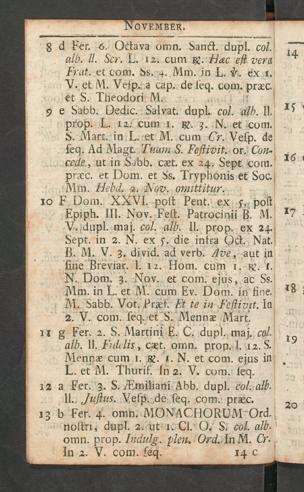 NOVEMBER.
8 d Fer. 6. Octava omn. Sanct. dupl. col.
alb. ll. Scr. L. 12. cum ℟. Hæc est vera
Frat. et com. Ss. 4. Mm. in L. ℣. ex 1.
V. et M. Vesp. a cap. de seq. com. præc.
et S. Theodori M.
9 e Sabb. Dedic. Salvat. dupl. col. alb. ll.
prop. L. 12. cum 1. ℟. 3. N. et com.
S. Mart. in L. et M. cum Cr. Vesp. de
seq. Ad Magt. Tuam S. Festivit. or. Con-
cede, ut in Sabb. cæt. ex 24. Sept com.
præc. et Dom. et Ss. Tryphonis et Soc.
Mm. Hebd. 2. Nov. omittitur.
10 F Dom. XXVI. post Pent. ex 5. post
Epiph. III. Nov. Fest. Patrocinii B. M.
V. dupl. maj. col. alb. ll. prop. ex 24.
Sept. in 2. N. ex 5. die infra Oct. Nat.
B. M. V. 3. divid. ad verb. Ave, aut in
fine Breviar. l. 12. Hom. cum 1. ℟. 1.
N. Dom. 3. Nov. et com. ejus, ac Ss.
Mm. in L. et M. cum Ev. Dom. in fine.
M. Sabb. Vot. Præf. Et te in Festivit. In
2. V. com. seq. et S. Mennæ Mart.
11 g Fer. 2. S. Martini E. C. dupl. maj. col.
alb. ll. Fidelis, cæt. omn. prop. l. 12. S.
Mennæ cum 1. ℟. 1. N. et com. ejus in
L. et M. Thurif. In 2. V. com. seq.
12 a Fer. 3. S. Æmiliani Abb. dupl. col. alb.
ll. Justus. Vesp. de seq. com. præc.
13 b Fer. 4. omn. MONACHORUM Ord.
nostri, dupl. 2. ut 1. Cl. O. S. col. alb.
omn. prop. Indulg. plen. Ord. In M. Cr.
In 2. V. com. seq.
14 c
14
15
16
17
18
19
20